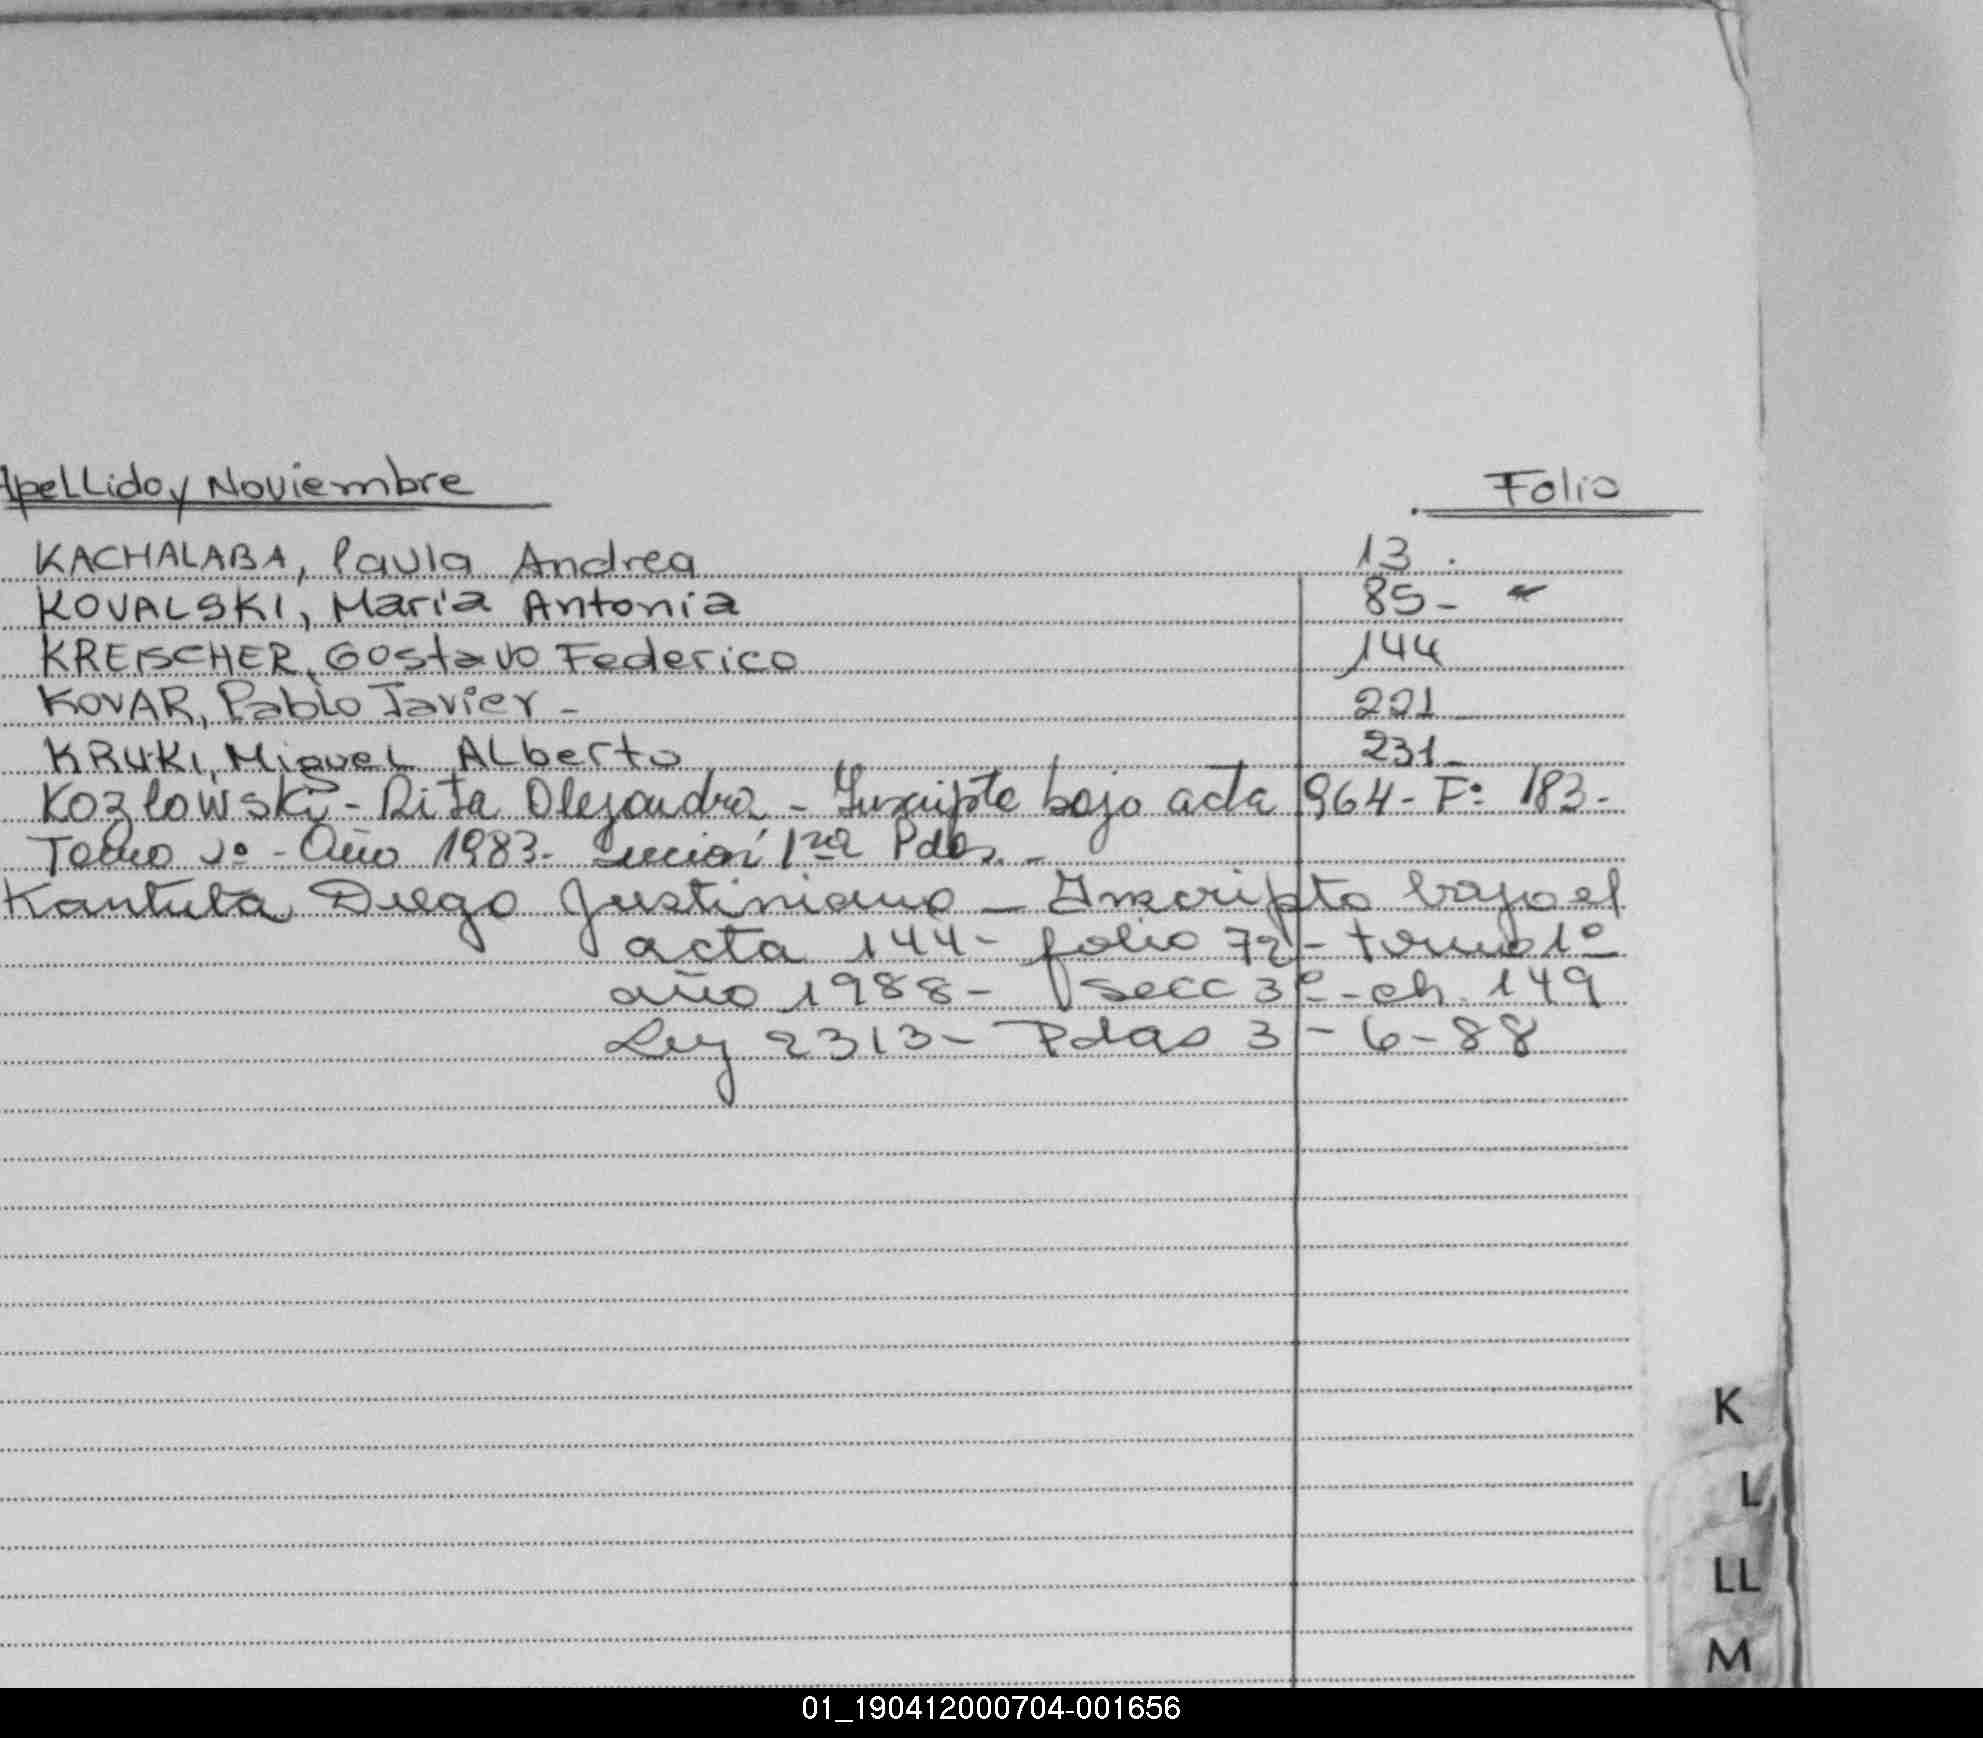 Apellido y Noviembre Folio
KACHALABA, Paula Andrea 13.
KOVALSKI, Maria Antonia 85-
KREISCHER, Gostavo Federico 144
KOVAR, Pablo Javier - 221
KRUKI, Miguel Alberto 231-
Kozlowski - Rita Alejandra - Inscripta bajo acta 964 - Fº 183 -
Tomo - Año 1983 - Sección 1ra Pdas. -
Kantuta Diego Justiniano - Inscripto bajo el
acta 144 - folio 72 - tomo 1º
año 1988 - secc 3º - ch. 149
Ley 2313 - Pdas 3 - 6 - 88
K
L
LL
M
01_190412000704-001656